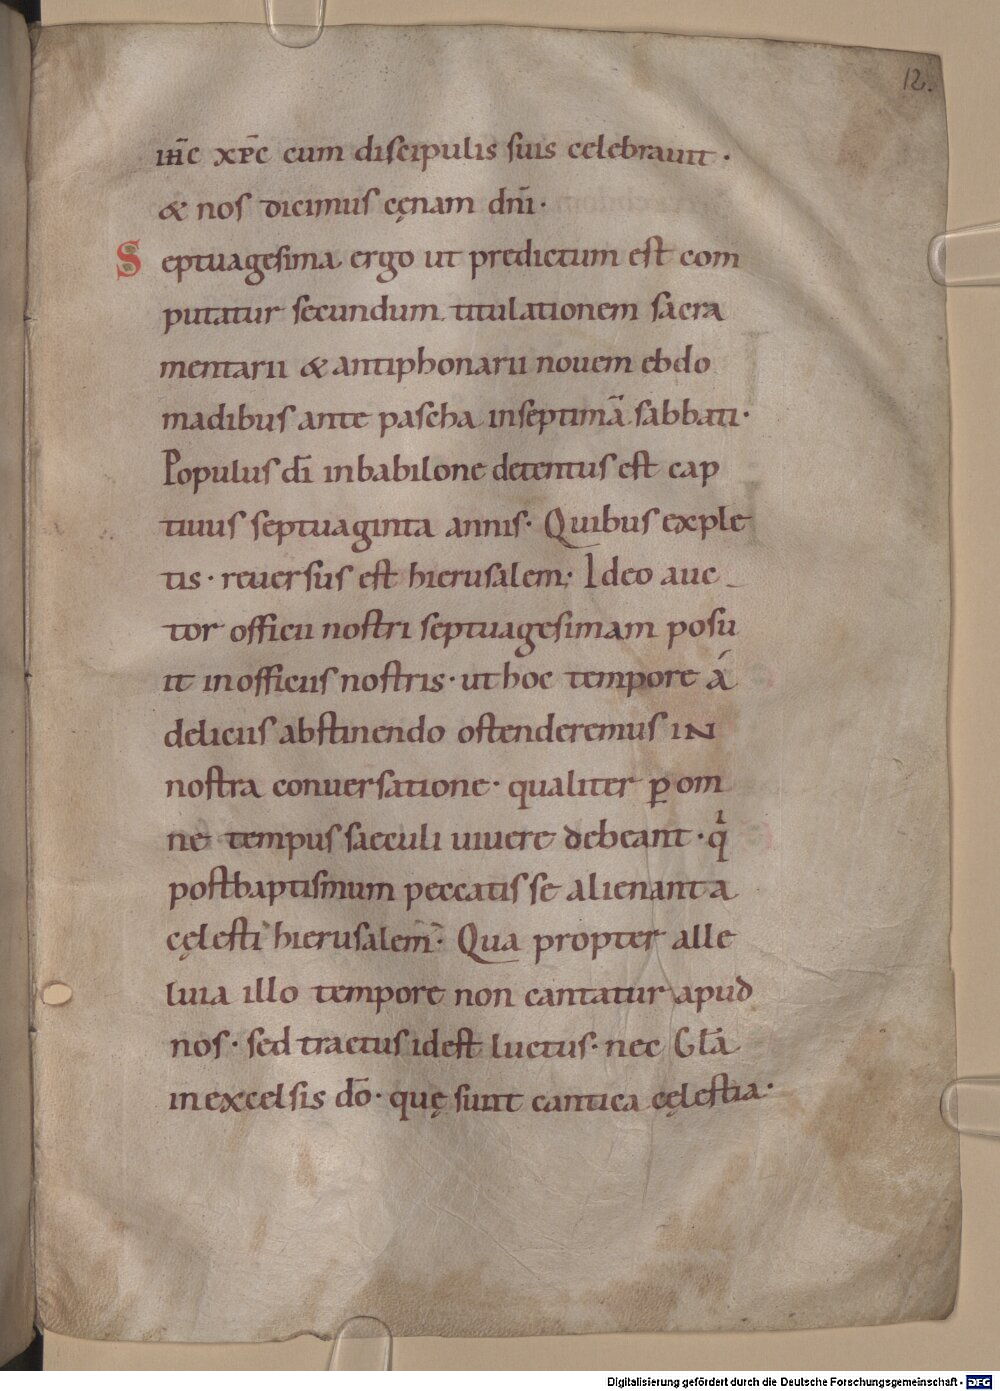 12.
ihc̅ xp̅c cum discipulis suis celebrauit·
& nos dicimus cęnam dn̅i·
Septuagesima ergo ut predictum est com
putatur secundum titulationem sacra
mentarii & antiphonarii nouem ebdo
madibus ante pascha inseptimā sabbati·
Populus dı̅ inbabilone detentus est cap
tiuus septuaginta annis· Quibus exple
tis· reuersus est hierusalem; Ideo auc_
tor officii nostri septuagesimam posu
it inofficiis nostris· ut hoc tempore á
deliciis abstinendo ostenderemus IN
nostra conuersatione· qualiter ꝑ om
ne tempus saeculi uiuere debeant· qͥ
postbaptismum peccatis se alienant a
cęlesti hierusalem̅· Qua propter alle
luia illo tempore non cantatur apud
nos· sed tractus idest luctus· nec Gl̅a
inexcelsis do̅· quę sunt cantica cęlestia·
Digitalisierung gefördert durch die Deutsche Forschungsgemeinschaft - DFG